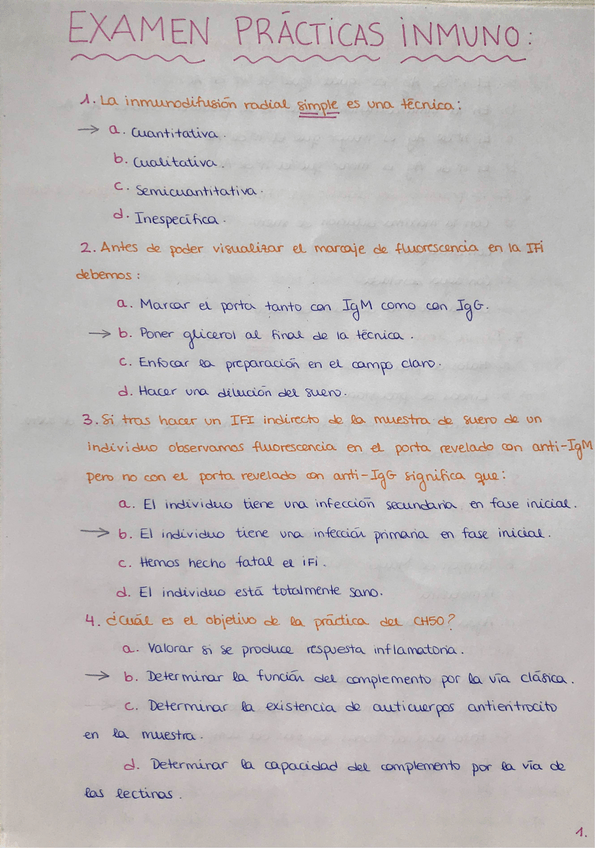 EXAMEN PRÁCTICAS INMUNO:
1. La inmunodifusión radial simple es una técnica:
→ a. Cuantitativa.
b. Cualitativa.
c. Semicuantitativa.
d. Inespecífica.
2. Antes de poder visualizar el marcaje de fluorescencia en la IFi
debemos:
a. Marcar el porta tanto con IgM como con IgG.
→ b. Poner glicerol al final de la técnica.
c. Enfocar la preparación en el campo claro.
d. Hacer una dilución del suero.
3. Si tras hacer un IFI indirecto de la muestra de suero de un
individuo observamos fluorescencia en el porta revelado con anti-IgM
pero no con el porta revelado con anti-IgG significa que:
a. El individuo tiene una infección secundaria en fase inicial.
→ b. El individuo tiene una infección primaria en fase inicial.
c. Hemos hecho fatal el iFi.
d. El individuo está totalmente sano.
4. ¿Cuál es el objetivo de la práctica del CH50?
a. Valorar si se produce respuesta inflamatoria.
→ b. Determinar la función del complemento por la vía clásica.
c. Determinar la existencia de anticuerpos antieritrocito
en la muestra.
d. Determinar la capacidad del complemento por la vía de
las lectinas.
1.